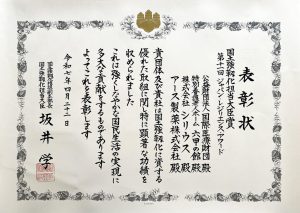 表彰状
国土強靱化担当大臣賞
第十一回 ジャパン・レジリエンス・アワード
公益財団法人国際医療財団 殿
特別養護老人ホーム六甲の館 殿
株式会社シリウス 殿
アース製薬株式会社 殿
貴団体及び貴社は国土強靱化に資する
優れた取組に関し特に顕著な功績を
収められました
これは強くしなやかな国民生活の実現に
多大な貢献をするものであります
よってこれを表彰します
令和七年四月二十二日
国土強靱化担当大臣
坂井 学